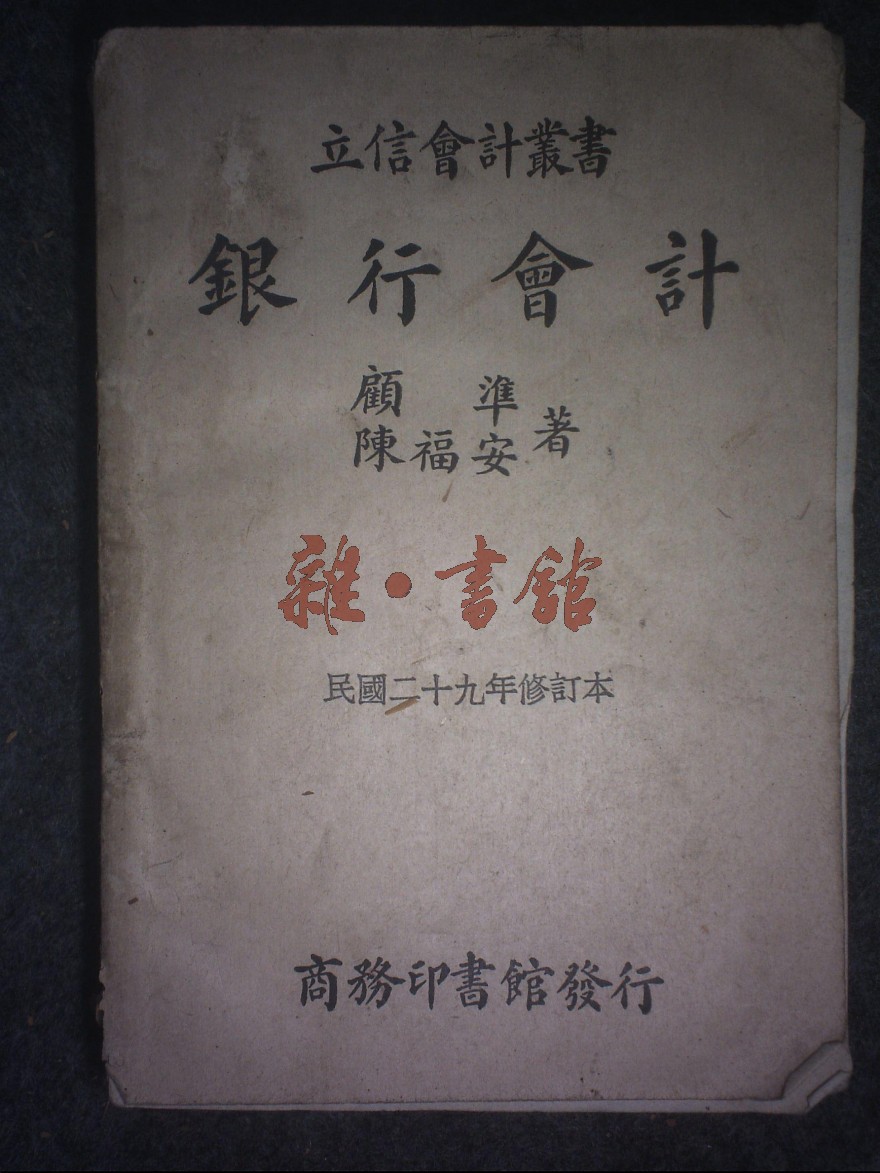 立信會計叢書
銀行會計
顧準
陳福安著
雜·書館
民國二十九年修訂本
商務印書館發行